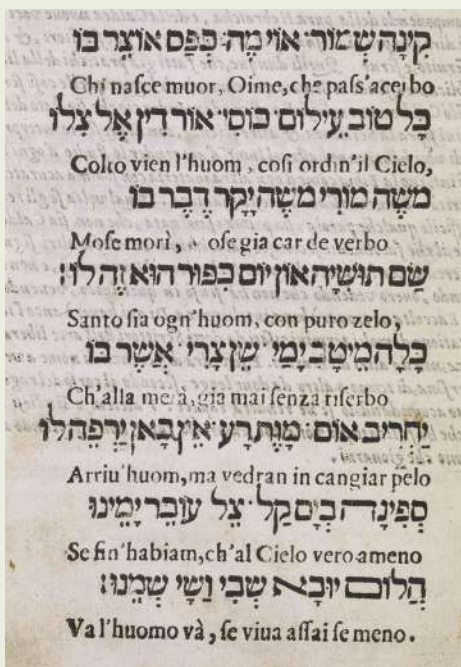 קִינָה שְׁמוֹר· אוֹי מֶה· כְּפַס אוֹצֵר בּוֹ
Chi nasce muor, Oime, che pass'acerbo
כָּל טוֹב עֵילוֹם· כּוֹסִי· אוֹר דִין אֶל צִלוֹ
Colto vien l'huom, cosi ordin'il Cielo,
משֶה מוֹרִי משֶה יָקָר דֶבֶר בּוֹ
Mose mori, ose gia car de verbo
שַׂם תּוּשִׁיָה אוֹן יוֹם כִּפּוּר הוּא זֶה לוֹ:
Santo sia ogn'huom, con puro zelo,
כָּלָה מֵיטַב יָמַי שֶׁן צָרִי· אֲשֶׁר בּוֹ
Ch'alla metà, gia mai senza riserbo
יַחְרִיב אוֹם· מָוֶת רָע· אֵין כָּאן יַרְפֶּה לוֹ
Arriu'huom, ma vedran in cangiar pelo
סְפִינָה בְּיָם קַל· צֵל עוֹבֵר יָמֵינוּ
Se fin'habiam, ch'al Cielo vero ameno
הֲלוֹם יוּבָא שְׁבִי וְשַׁי שְׁמֵנוּ:
Va l'huomo và, se viua assai se meno.